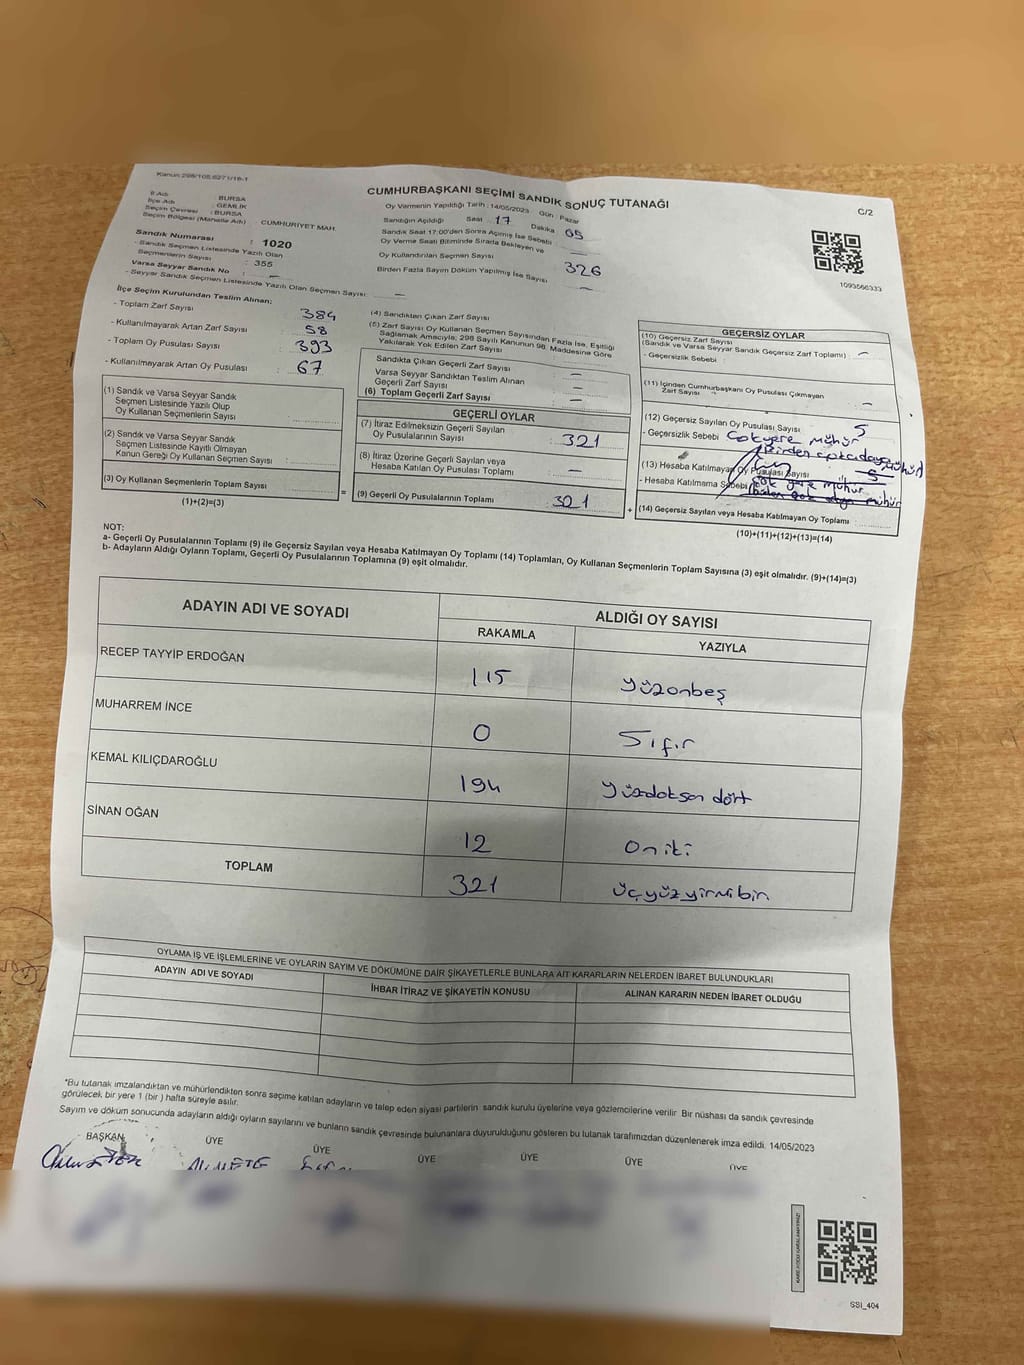 Kanun:298/105,6271/18-1
CUMHURBAŞKANI SEÇİMİ SANDIK SONUÇ TUTANAĞI
C/2
İl Adı : BURSA
İlçe Adı : GEMLİK
Seçim Çevresi : BURSA
Seçim Bölgesi (Mahalle Adı) : CUMHURİYET MAH.
Sandık Numarası : 1020
- Sandık Seçmen Listesinde Yazılı Olan
Seçmenlerin Sayısı : 355
Varsa Seyyar Sandık No : —
- Seyyar Sandık Seçmen Listesinde Yazılı Olan Seçmen Sayısı : —
Oy Vermenin Yapıldığı Tarih : 14/05/2023 Gün : Pazar
Sandığın Açıldığı Saat : 17 Dakika 05
Sandık Saat 17:00'den Sonra Açılmış İse Sebebi : —
Oy Verme Saati Bitiminde Sırada Bekleyen ve
Oy Kullandırılan Seçmen Sayısı 326
Birden Fazla Sayım Döküm Yapılmış İse Sayısı : —
1093566333
İlçe Seçim Kurulundan Teslim Alınan:
- Toplam Zarf Sayısı : 384
- Kullanılmayarak Artan Zarf Sayısı : 58
- Toplam Oy Pusulası Sayısı : 393
- Kullanılmayarak Artan Oy Pusulası : 67
(1) Sandık ve Varsa Seyyar Sandık
Seçmen Listesinde Yazılı Olup
Oy Kullanan Seçmenlerin Sayısı
(2) Sandık ve Varsa Seyyar Sandık
Seçmen Listesinde Kayıtlı Olmayan
Kanun Gereği Oy Kullanan Seçmen Sayısı :
(3) Oy Kullanan Seçmenlerin Toplam Sayısı :
(1)+(2)=(3)
=
(4) Sandıktan Çıkan Zarf Sayısı :
(5) Zarf Sayısı Oy Kullanan Seçmen Sayısından Fazla İse, Eşitliği
Sağlamak Amacıyla; 298 Sayılı Kanunun 98. Maddesine Göre
Yakılarak Yok Edilen Zarf Sayısı :
Sandıkta Çıkan Geçerli Zarf Sayısı : —
Varsa Seyyar Sandıktan Teslim Alınan
Geçerli Zarf Sayısı : —
(6) Toplam Geçerli Zarf Sayısı : —
GEÇERLİ OYLAR
(7) İtiraz Edilmeksizin Geçerli Sayılan
Oy Pusulalarının Sayısı : 321
(8) İtiraz Üzerine Geçerli Sayılan veya
Hesaba Katılan Oy Pusulası Toplamı : —
(9) Geçerli Oy Pusulalarının Toplamı : 321
+
GEÇERSİZ OYLAR
(10) Geçersiz Zarf Sayısı
(Sandık ve Varsa Seyyar Sandık Geçersiz Zarf Toplamı) : —
- Geçersizlik Sebebi :
(11) İçinden Cumhurbaşkanı Oy Pusulası Çıkmayan
Zarf Sayısı : —
(12) Geçersiz Sayılan Oy Pusulası Sayısı : 5
- Geçersizlik Sebebi : Çok yere mühür
(13) Hesaba Katılmayan Oy Pusulası Sayısı : 5
- Hesaba Katılmama Sebebi : çok yere mühür
(14) Geçersiz Sayılan veya Hesaba Katılmayan Oy Toplamı :
(10)+(11)+(12)+(13)=(14)
NOT:
a- Geçerli Oy Pusulalarının Toplamı (9) ile Geçersiz Sayılan veya Hesaba Katılmayan Oy Toplamı (14) Toplamları, Oy Kullanan Seçmenlerin Toplam Sayısına (3) eşit olmalıdır. (9)+(14)=(3)
b- Adayların Aldığı Oyların Toplamı, Geçerli Oy Pusulalarının Toplamına (9) eşit olmalıdır.
ADAYIN ADI VE SOYADI
ALDIĞI OY SAYISI
RAKAMLA YAZIYLA
RECEP TAYYİP ERDOĞAN 115 yüzonbeş
MUHARREM İNCE 0 Sıfır
KEMAL KILIÇDAROĞLU 194 yüzdoksan dört
SİNAN OĞAN 12 oniki
TOPLAM 321 üçyüzyirmibir
OYLAMA İŞ VE İŞLEMLERİNE VE OYLARIN SAYIM VE DÖKÜMÜNE DAİR ŞİKAYETLERLE BUNLARA AİT KARARLARIN NELERDEN İBARET BULUNDUKLARI
ADAYIN ADI VE SOYADI İHBAR İTİRAZ VE ŞİKAYETİN KONUSU ALINAN KARARIN NEDEN İBARET OLDUĞU
*Bu tutanak imzalandıktan ve mühürlendikten sonra seçime katılan adayların ve talep eden siyasi partilerin sandık kurulu üyelerine veya gözlemcilerine verilir. Bir nüshası da sandık çevresinde
görülecek bir yere 1 (bir) hafta süreyle asılır.
Sayım ve döküm sonucunda adayların aldığı oyların sayılarını ve bunların sandık çevresinde bulunanlara duyurulduğunu gösteren bu tutanak tarafımızdan düzenlenerek imza edildi. 14/05/2023
BAŞKAN ÜYE ÜYE ÜYE ÜYE ÜYE ÜYE
SSI_404